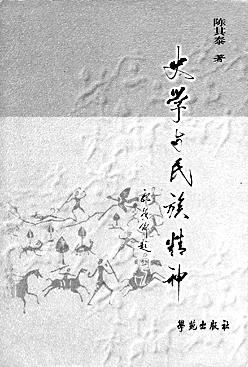 陈其泰 著
史学与民族精神
学苑出版社